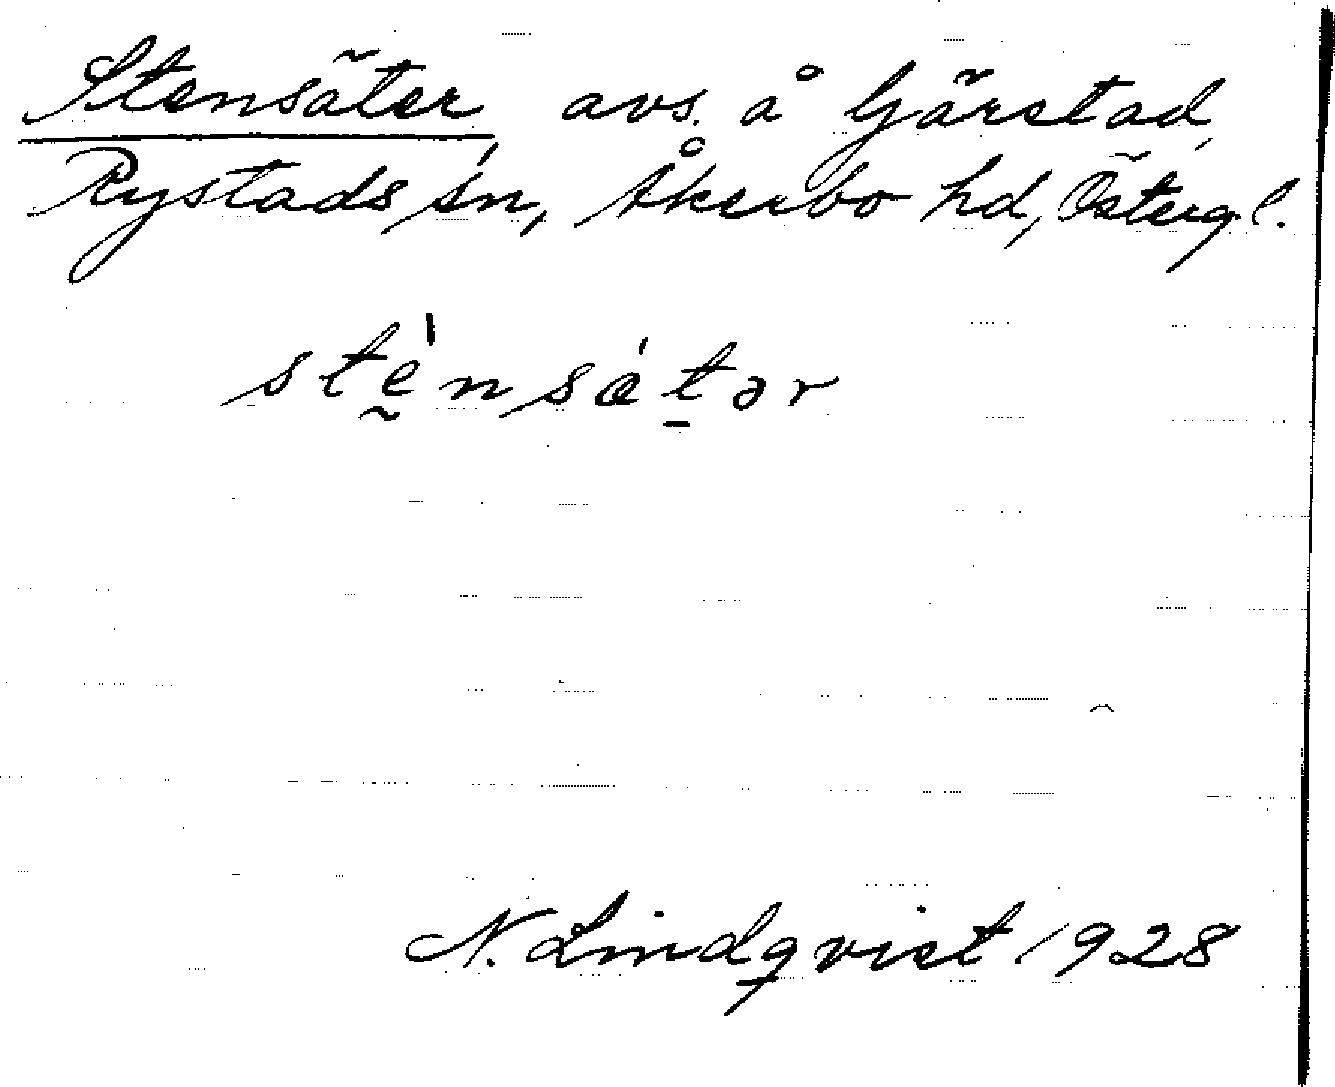 Stensäter, avs. å Gärstad,
Rystads sn, Åkerbo hd, Östergl.
stḛ̀nsátər
N. Lindqvist 1928